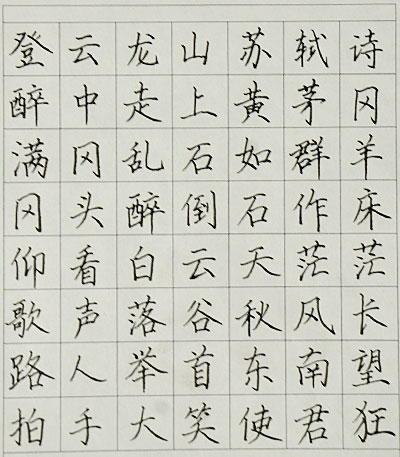 登云龙山苏轼诗
醉中走上黄茅冈
满冈乱石如群羊
冈头醉倒石作床
仰看白云天茫茫
歌声落谷秋风长
路人举首东南望
拍手大笑使君狂